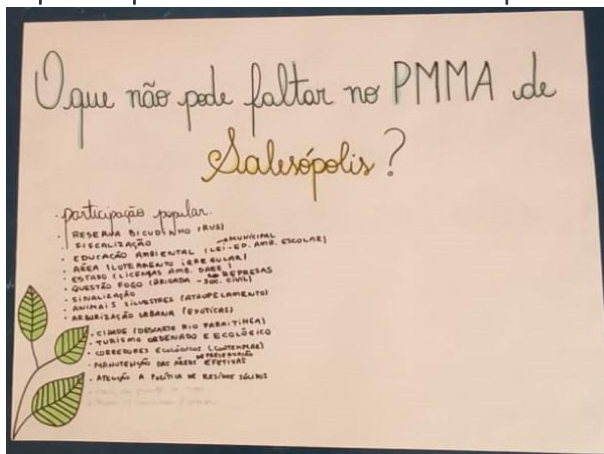 O que não pode faltar no PMMA de
Salesópolis?
· participação popular.
· RESERVA BICUDINHO (RVS)
· FISCALIZAÇÃO
· EDUCAÇÃO AMBIENTAL (LEI-ED. AMB. ESCOLAR)
→ MUNICIPAL
· ÁREA (LOTEAMENTO IRREGULAR)
· ESTADO (LICENÇAS AMB. DAEE)
· QUESTÃO FOGO (BRIGADA - SOC. CIVIL)
REPRESAS
· SINALIZAÇÃO
· ANIMAIS SILVESTRES (ATROPELAMENTO)
· ARBORIZAÇÃO URBANA (EXÓTICAS)
· CIDADE (DESCARTE RIO PARAITINGA)
· TURISMO ORDENADO E ECOLÓGICO
· CORREDORES ECOLÓGICOS (CONTEMPLAR)
· MANUTENÇÃO DAS ÁREAS DE PRESERVAÇÃO EFETIVAS
· ATENÇÃO A POLÍTICA DE RESÍDUOS SÓLIDOS